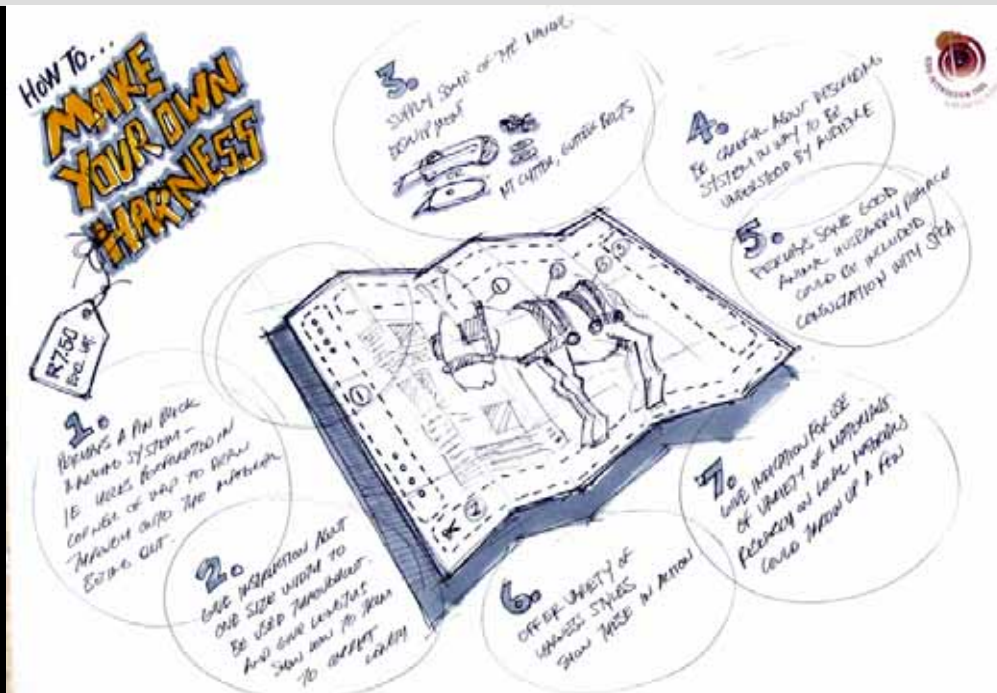 HOW TO...
MAKE
YOUR OWN
HARNESS
R7.50
EXCL. VAT.
1.
PERHAPS A PIN PRICK
MANUAL SYSTEM -
IE HOLES PERFORATED IN
CORNER OF MAP TO DRAW
THROUGH ONTO THE MATERIAL
BEING CUT -
2.
GIVE INSPIRATION ABOUT
ONE SIZE WIDTH TO
BE USED THROUGHOUT -
AND GIVE LENGTHS
SHOW HOW TO TRIM
TO CORRECT
LENGTH -
3.
SUPPLY SOME OF THE
EQUIPMENT
NT CUTTER, GUTTER BOLTS
4.
BE CAREFUL ABOUT DESCRIBING
SYSTEM IN WAY TO BE
UNDERSTOOD BY AUDIENCE
5.
PERHAPS SOME GOOD
ANIMAL HUSBANDRY
COULD BE INCLUDED
CONSULTATION WITH SPCA
6.
OFFER VARIETY OF
HARNESS STYLES
SHOW THESE IN ACTION
7.
GIVE INDICATION FOR USE
OF VARIETY OF MATERIALS
RESEARCH ON LOCAL MATERIALS
COULD THROW UP A FEW
1
2
1